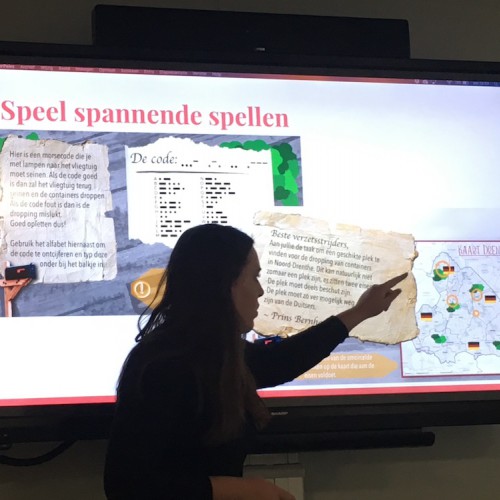 Speel spannende spellen
Hier is een morsecode die je
met lampen naar het vliegtuig
moet seinen. Als de code goed
is dan zal het vliegtuig terug
seinen en de containers droppen.
Als de code fout is dan is de
dropping mislukt.
Goed opletten dus!
Gebruik het alfabet hiernaast om
de code te ontcijferen en typ deze
onder bij het balkje in.
De code:
Beste verzetsstrijders,
Aan jullie de taak om een geschikte plek te
vinden voor de dropping van containers
in Noord-Drenthe. Dit kan natuurlijk niet
zomaar een plek zijn, er zitten
De plek moet deels beschut zijn.
De plek moet zo ver mogelijk weg
zijn van de Duitsers.
~ Prins Bernh
KAART